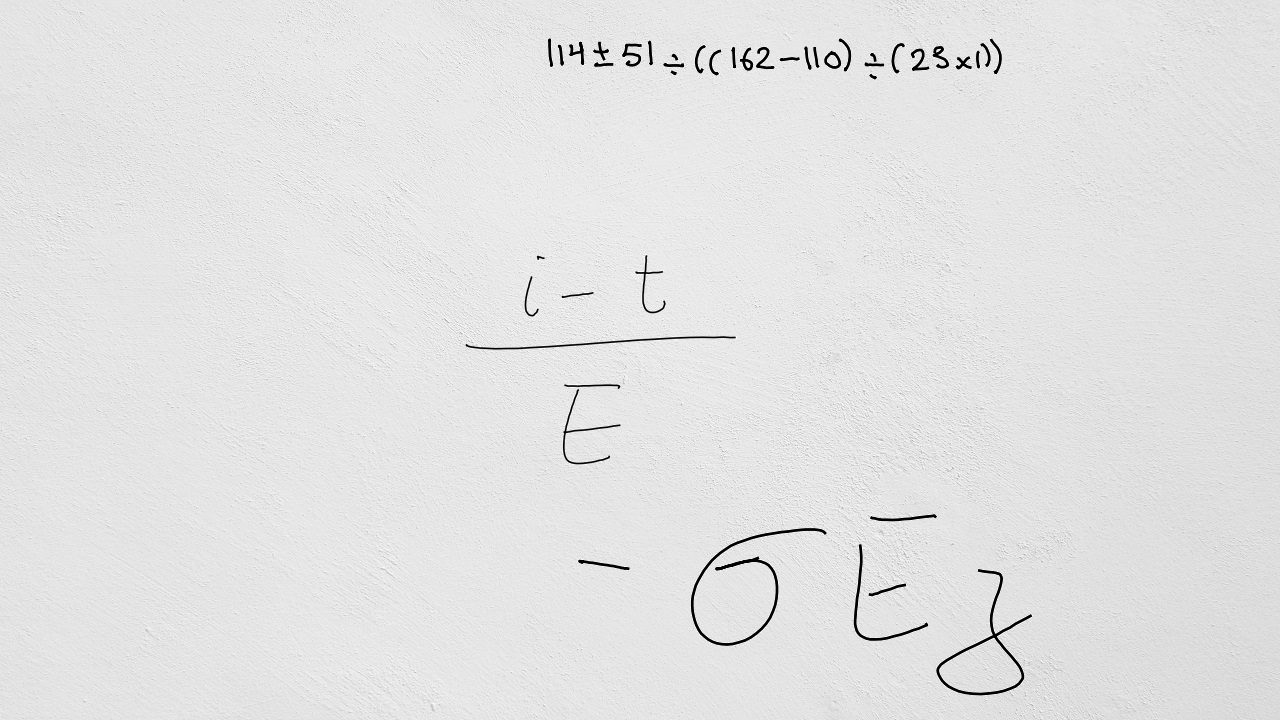 |14 ± 5| ÷ ((162 - 110) ÷ (23 × 1))
i - t
E
- σ E z